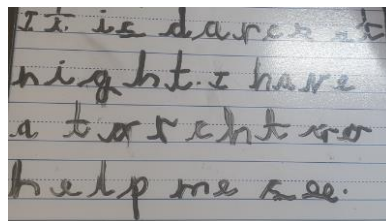 It is darck at
night. I have
a torcht to
help me see.